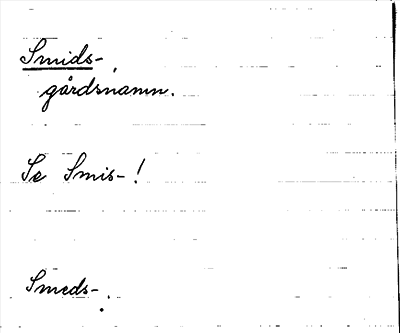 Smids-,
gårdsnamn.
Se Smis-!
Smeds-.